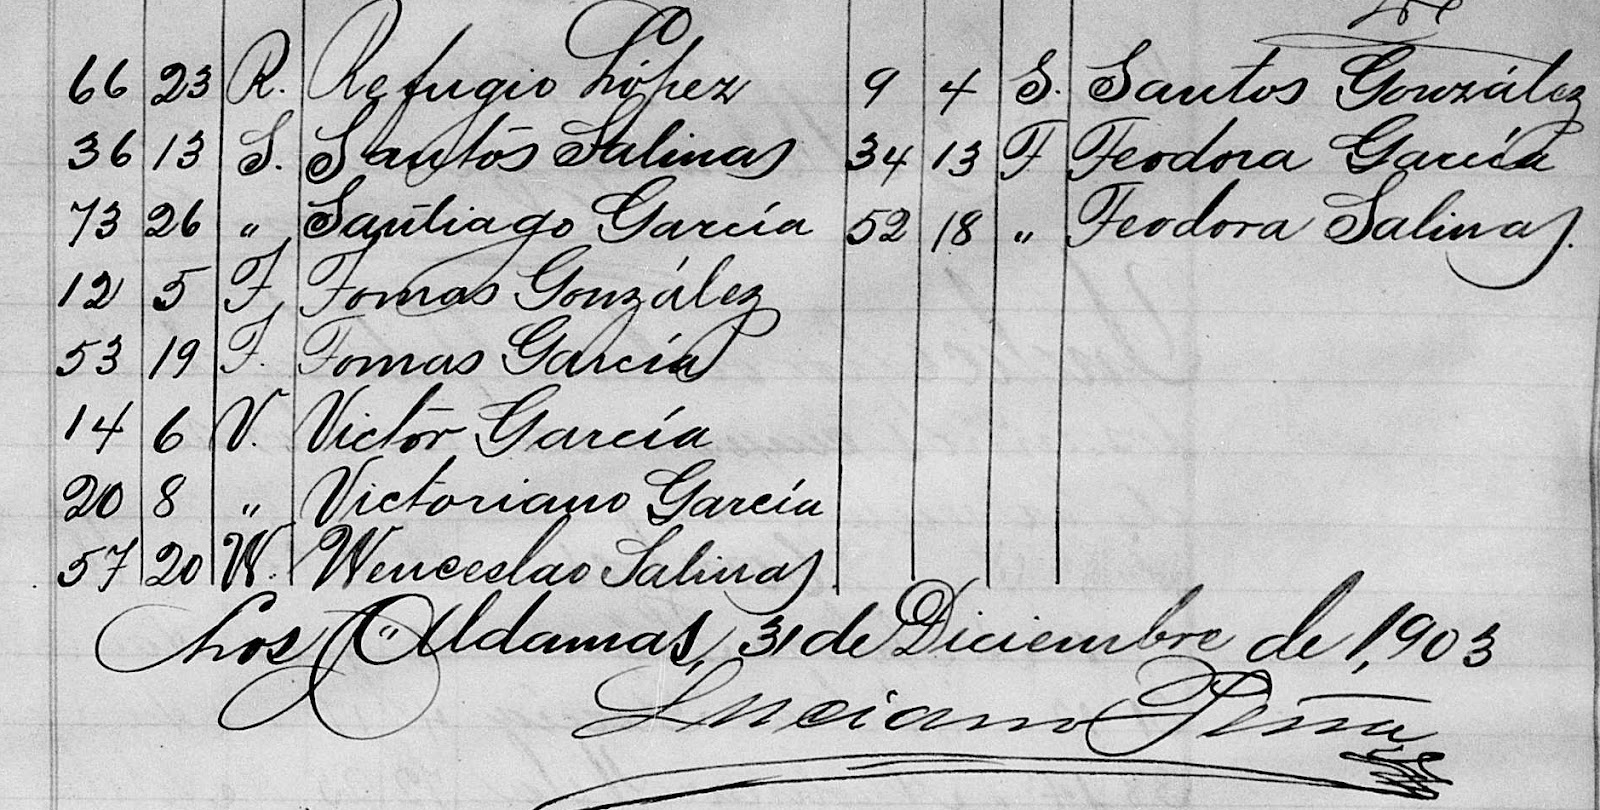 66 23 R. Refugio López 9 4 S. Santos González
36 13 S. Santos Salinas 34 13 F Feodora García
73 26 " Santiago García 52 18 " Feodora Salinas.
12 5 F Fomas González
53 19 F. Fomas García
14 6 V. Victor García
20 8 " Victoriano García
57 20 W. Wenceslao Salinas
Los "Aldamas, 31 de Diciembre de 1,903
Luciano Peña